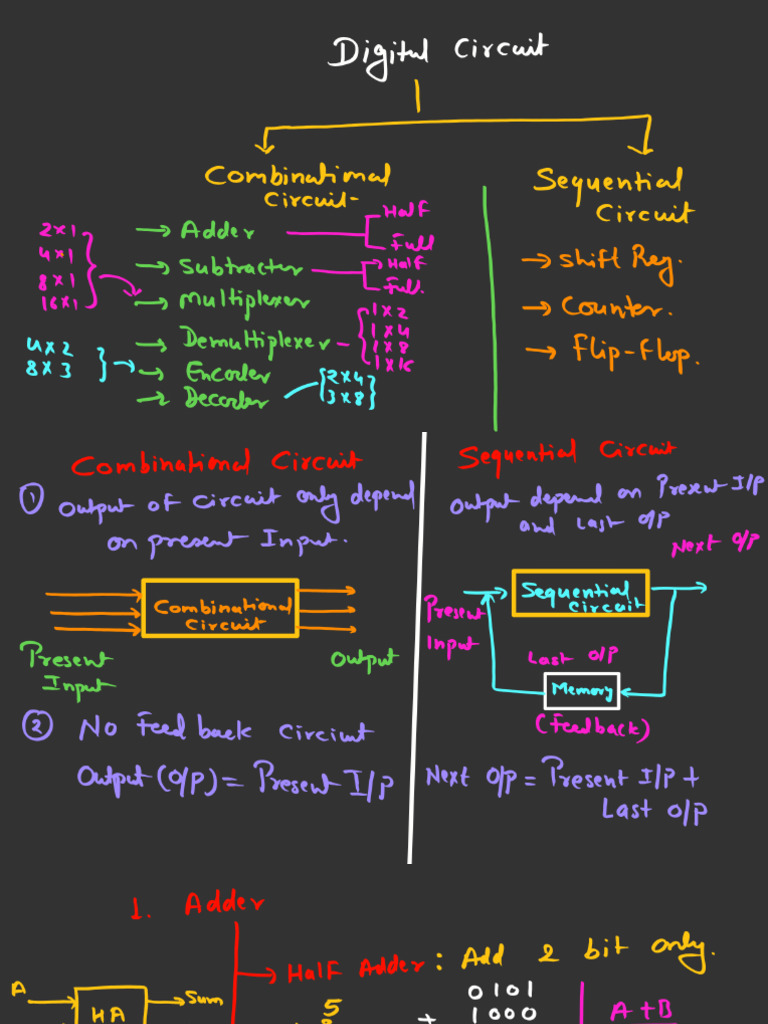 Digital Circuit
Combinational
Circuit-
Sequential
Circuit
2x1
4x1
8x1
16x1
→ Adder
Half
Full
→ Subtractor
→ Half
Full.
→ Multiplexer
→ Demultiplexer -
1x2
1x4
1x8
1x16
4x2
8x3
→ Encoder
→ Decoder
2x4
3x8
→ Shift Reg.
→ Counter.
→ Flip-Flop.
Combinational Circuit
① Output of circuit only depend
on present Input.
Combinational
Circuit
Present
Input
Output
② No Feed back Circiut
Output (O/P) = Present I/P
Sequential Circuit
Output depend on Present I/P
and Last O/P
Next O/P
Sequential
Circuit
Present
Input
Last O/P
Memory
(Feedback)
Next O/P = Present I/P +
Last O/P
1. Adder
→ Half Adder : Add 2 bit only.
A
HA
Sum
5
0101
+ 1000
A+B